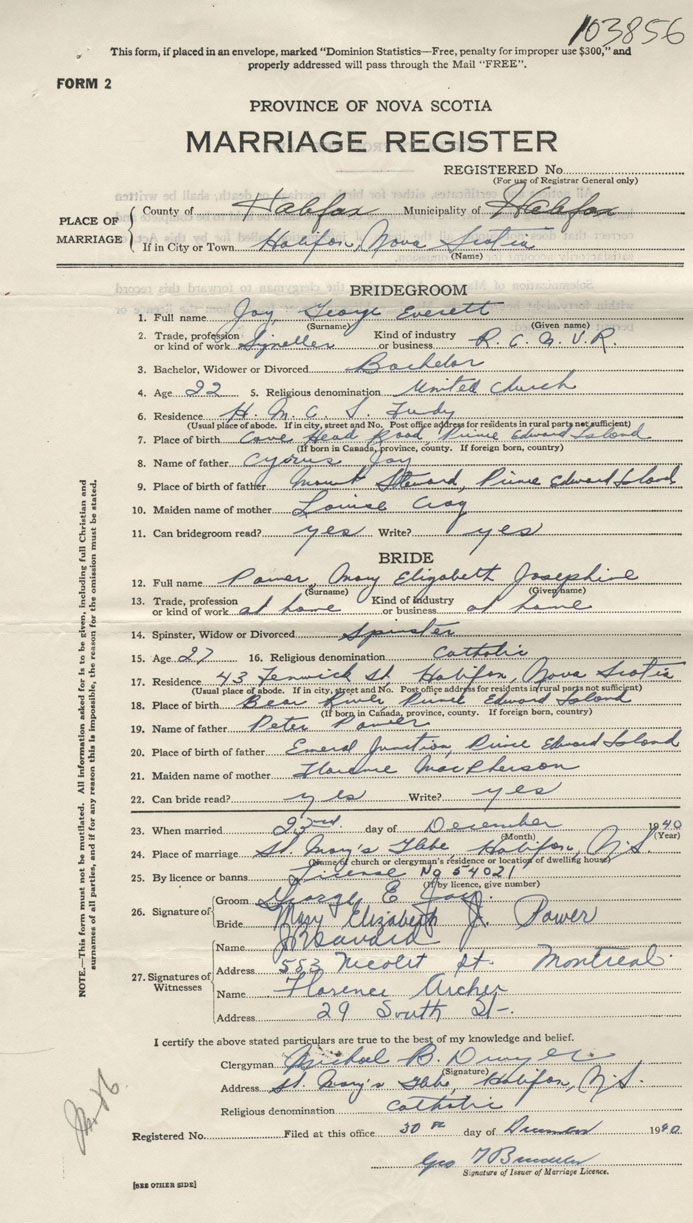 103856
This form, if placed in an envelope, marked "Dominion Statistics—Free, penalty for improper use $300," and
properly addressed will pass through the Mail "FREE".
FORM 2
PROVINCE OF NOVA SCOTIA
MARRIAGE REGISTER
REGISTERED No.
(For use of Registrar General only)
PLACE OF MARRIAGE
County of Halifax Municipality of Halifax
If in City or Town Halifax, Nova Scotia
(Name)
BRIDEGROOM
1. Full name Joy, George Everett
(Surname) (Given name)
2. Trade, profession or kind of work Signaller Kind of industry or business R. C. N. V. R.
3. Bachelor, Widower or Divorced Bachelor
4. Age 22 5. Religious denomination United Church
6. Residence H. M. C. S.
(Usual place of abode. If in city, street and No. Post office address for residents in rural parts not sufficient)
7. Place of birth Cove Head Road, Prince Edward Island
(If born in Canada, province, county. If foreign born, country)
8. Name of father Cyrus Joy
9. Place of birth of father Mount Steward, Prince Edward Island
10. Maiden name of mother Louise
11. Can bridegroom read? yes Write? yes
BRIDE
12. Full name Power, Mary Elizabeth Josephine
(Surname) (Given name)
13. Trade, profession or kind of work at home Kind of industry or business at home
14. Spinster, Widow or Divorced Spinster
15. Age 27 16. Religious denomination Catholic
17. Residence 43 Fenwick St, Halifax, Nova Scotia
(Usual place of abode. If in city, street and No. Post office address for residents in rural parts not sufficient)
18. Place of birth Bear River, Prince Edward Island
(If born in Canada, province, county. If foreign born, country)
19. Name of father Peter Power
20. Place of birth of father Emeral Junction, Prince Edward Island
21. Maiden name of mother Florence MacPherson
22. Can bride read? yes Write? yes
23. When married 23rd day of December 1940
(Month) (Year)
24. Place of marriage St. Mary's Glebe, Halifax, N.S.
(Name of church or clergyman's residence or location of dwelling house)
25. By licence or banns License No 54021
(If by licence, give number)
26. Signature of
Groom George E Joy
Bride Mary Elizabeth J. Power
27. Signatures of Witnesses
Name
Address 583 Nicolet St. Montreal.
Name Florence Archer
Address 29 South St.
I certify the above stated particulars are true to the best of my knowledge and belief.
Clergyman Michael B. Dwyer
(Signature)
Address St. Mary's Glebe, Halifax, N.S.
Religious denomination Catholic
Registered No. Filed at this office 30th day of December 1940
Geo
Signature of Issuer of Marriage Licence.
[SEE OTHER SIDE]
NOTE.—This form must not be mutilated. All information asked for is to be given, including full Christian and
surnames of all parties, and if for any reason this is impossible, the reason for the omission must be stated.